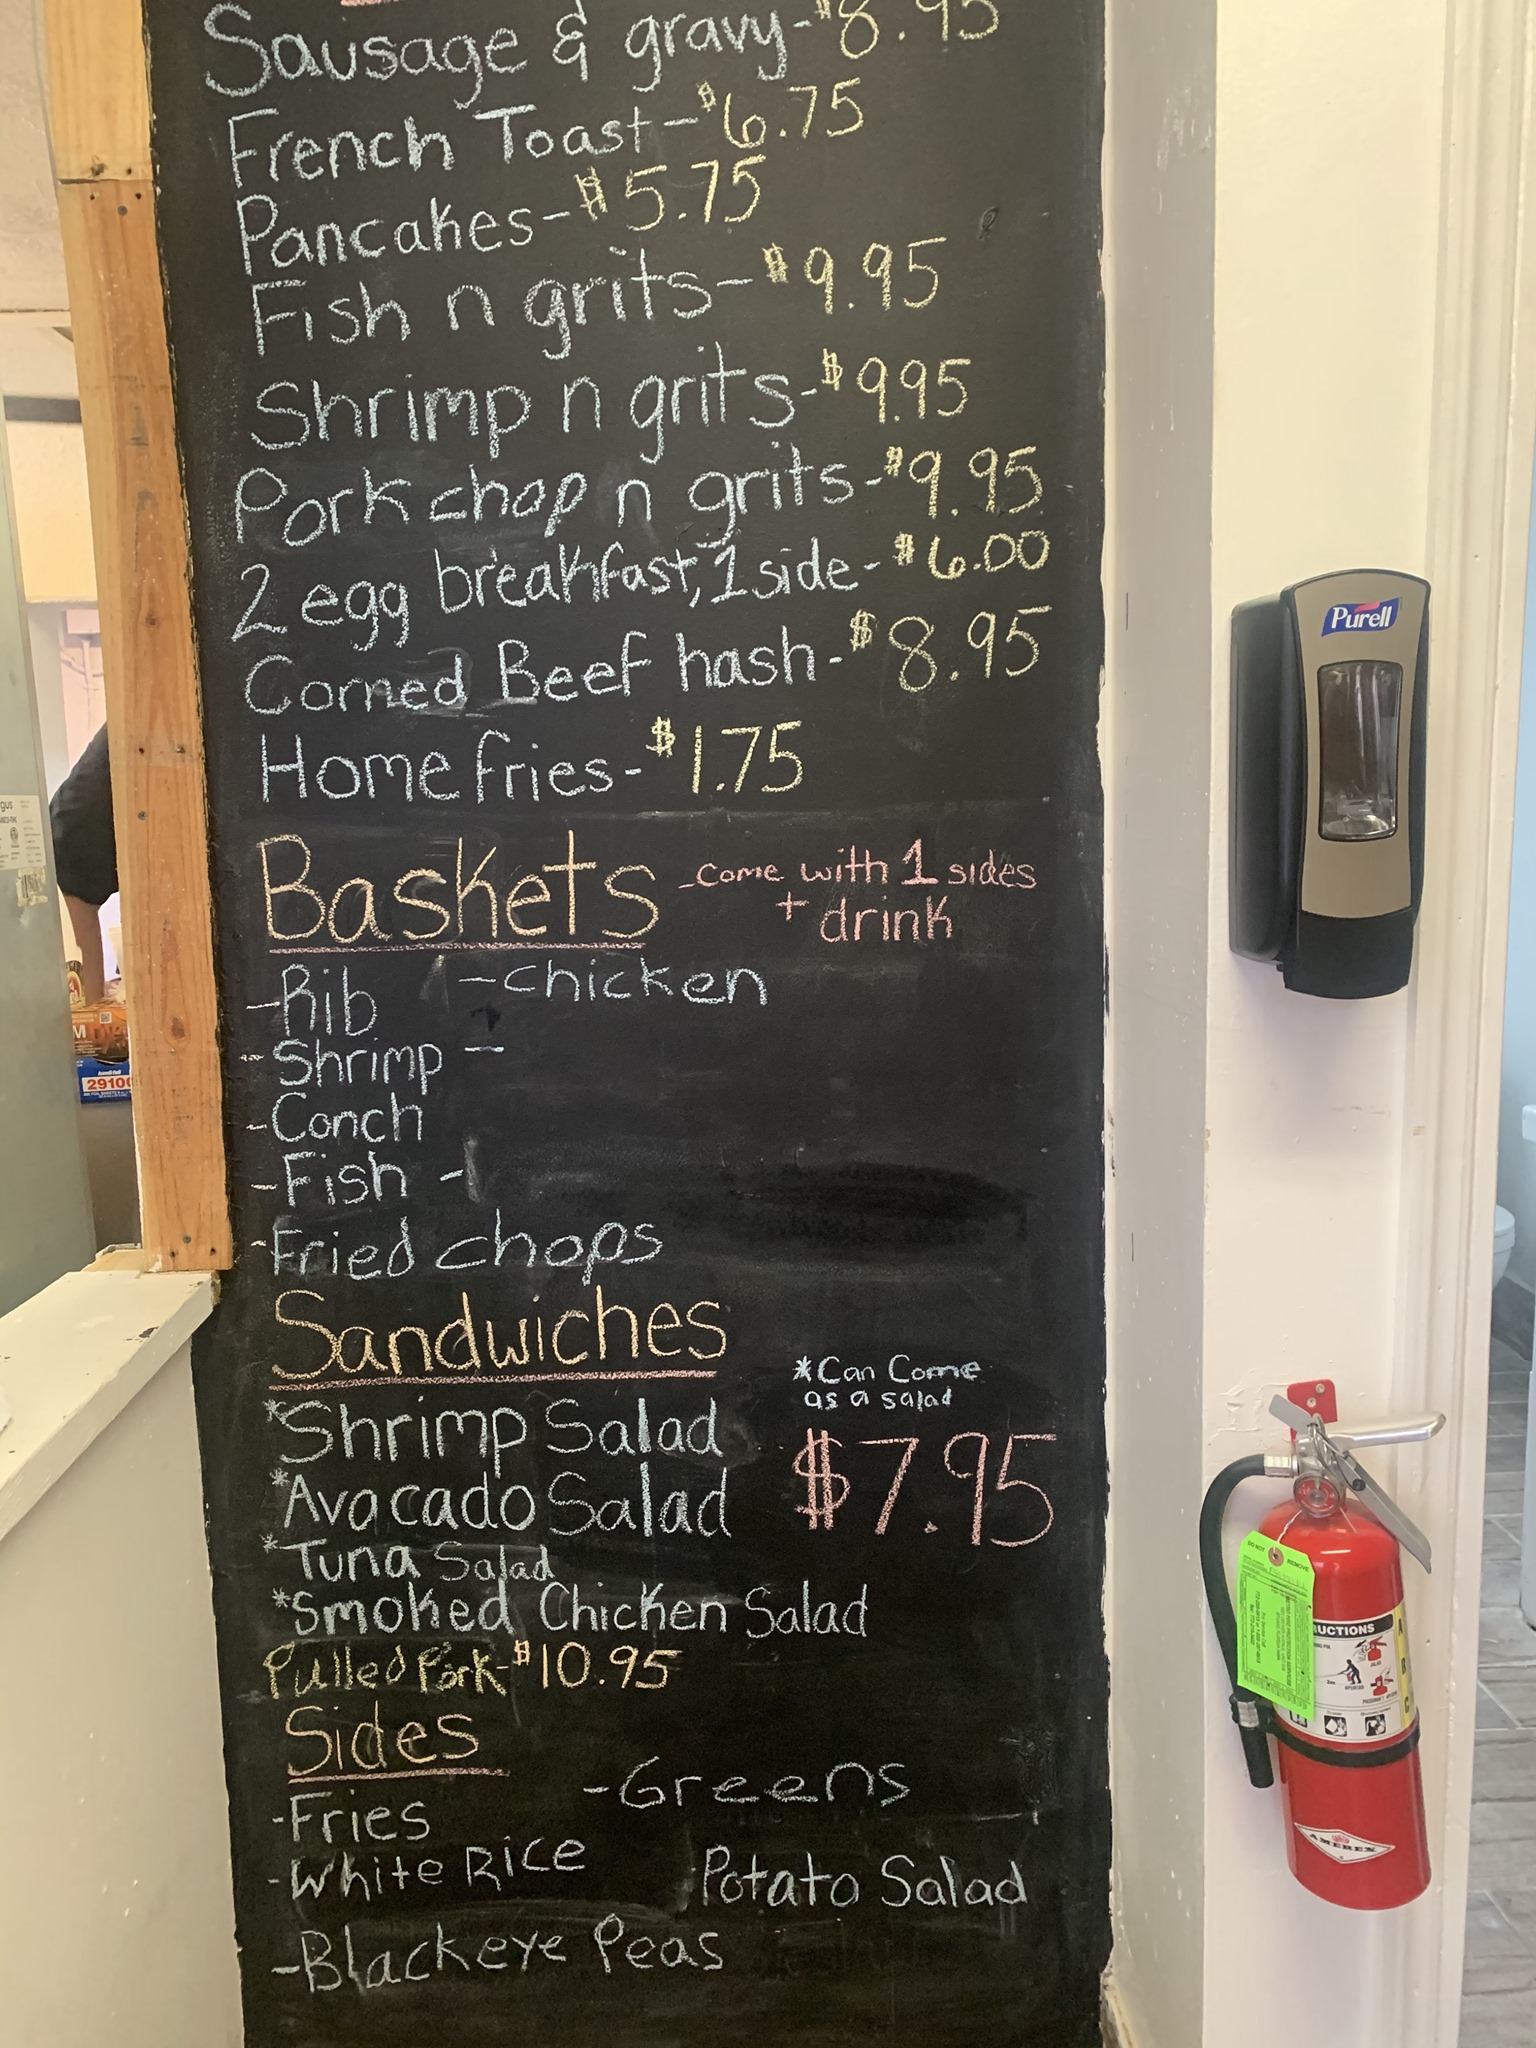 Sausage & gravy-$8.95
French Toast-$6.75
Pancakes-$5.75
Fish n grits-$9.95
Shrimp n grits-$9.95
Porkchop n grits-$9.95
2 egg breakfast, 1 side-$6.00
Corned Beef hash-$8.95
Home fries-$1.75
Baskets -come with 1 sides
+ drink
-Rib -chicken
Shrimp -
-Conch
-Fish -
-Fried chops
Sandwiches
*Can Come
as a salad
*Shrimp Salad
$7.95
*Avocado Salad
*Tuna Salad
*Smoked Chicken Salad
Pulled Pork-$10.95
Sides
-Greens
-Fries
-White Rice
Potato Salad
-Blackeye Peas
Purell
DO NOT REMOVE
UCTIONS
AMEREX
A
B
C
2910